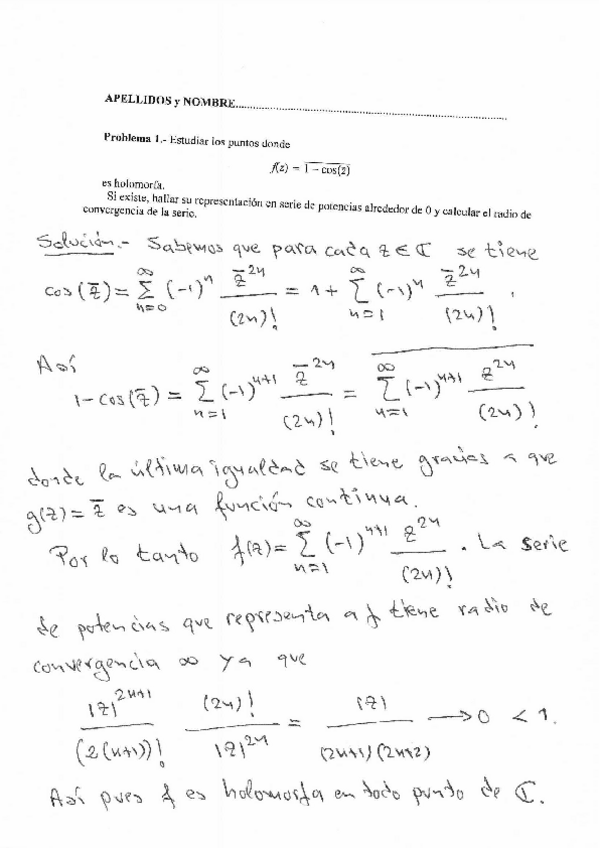 APELLIDOS y NOMBRE
Problema 1.- Estudiar los puntos donde
f(z) = \overline{1 - cos(\overline{z})}
es holomorfa.
Si existe, hallar su representación en serie de potencias alrededor de 0 y calcular el radio de
convergencia de la serie.
Solución.- Sabemos que para cada z ∈ ℂ se tiene
cos(\overline{z}) = \sum_{n=0}^{∞} (-1)^n \frac{\overline{z}^{2n}}{(2n)!} = 1 + \sum_{n=1}^{∞} (-1)^n \frac{\overline{z}^{2n}}{(2n)!} .
Así
1 - cos(\overline{z}) = \sum_{n=1}^{∞} (-1)^{n+1} \frac{\overline{z}^{2n}}{(2n)!} = \overline{\sum_{n=1}^{∞} (-1)^{n+1} \frac{z^{2n}}{(2n)!}}
donde la última igualdad se tiene gracias a que
g(z) = \overline{z} es una función continua.
Por lo tanto f(z) = \sum_{n=1}^{∞} (-1)^{n+1} \frac{z^{2n}}{(2n)!} . La serie
de potencias que representa a f tiene radio de
convergencia ∞ ya que
\frac{|z|^{2n+1}}{(2(n+1))!} \frac{(2n)!}{|z|^{2n}} = \frac{|z|}{(2n+1)(2n+2)} → 0 < 1.
Así pues f es holomorfa en todo punto de ℂ.